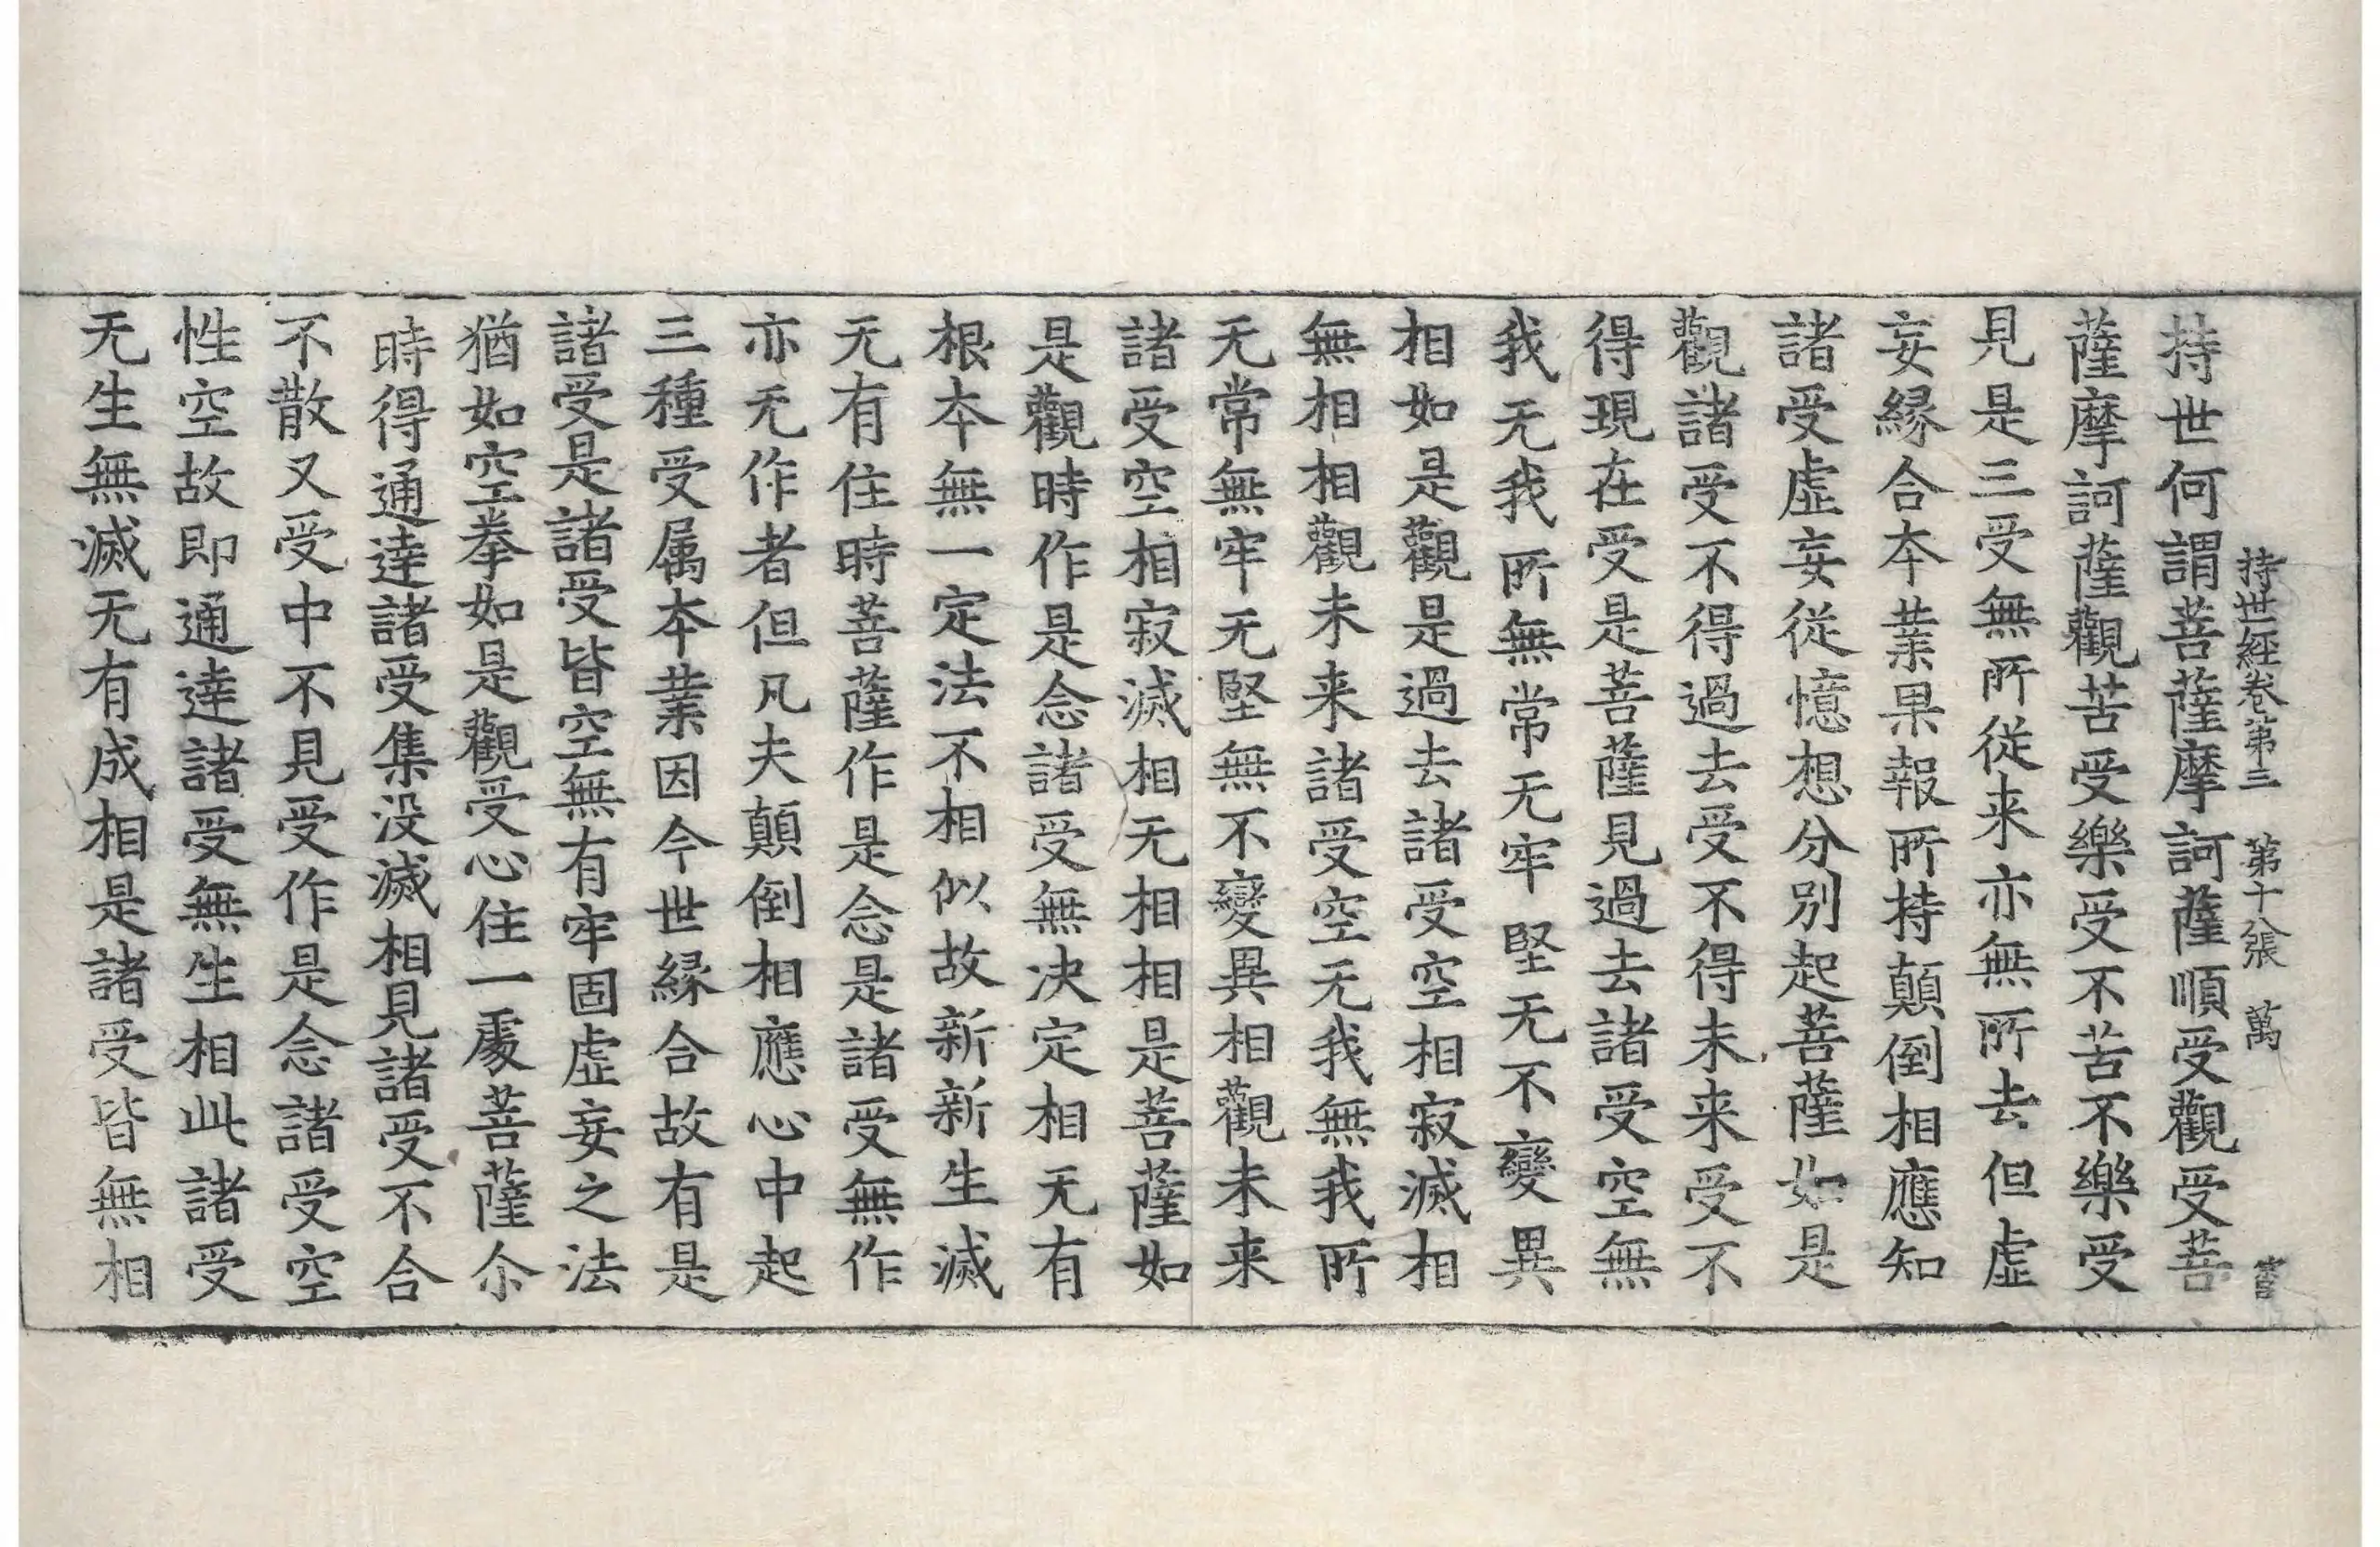 持世經卷第三 第十八張 萬
持世何謂菩薩摩訶薩順受觀受菩
薩摩訶薩觀苦受樂受不苦不樂受
見是三受無所從来亦無所去但虛
妄縁合本業果報所持顛倒相應知
諸受虛妄從憶想分別起菩薩如是
觀諸受不得過去受不得未来受不
得現在受是菩薩見過去諸受空無
我无我所無常无牢堅无不變異
相如是觀是過去諸受空相寂滅相
無相相觀未来諸受空无我無我所
无常無牢无堅無不變異相觀未来
諸受空相寂滅相无相相是菩薩如
是觀時作是念諸受無决定相无有
根本無一定法不相似故新新生滅
无有住時菩薩作是念是諸受無作
亦无作者但凡夫顛倒相應心中起
三種受属本業因今世縁合故有是
諸受是諸受皆空無有牢固虛妄之法
猶如空拳如是觀受心住一處菩薩尒
時得通達諸受集没滅相見諸受不合
不散又受中不見受作是念諸受空
性空故即通達諸受無生相此諸受
无生無滅无有成相是諸受皆無相